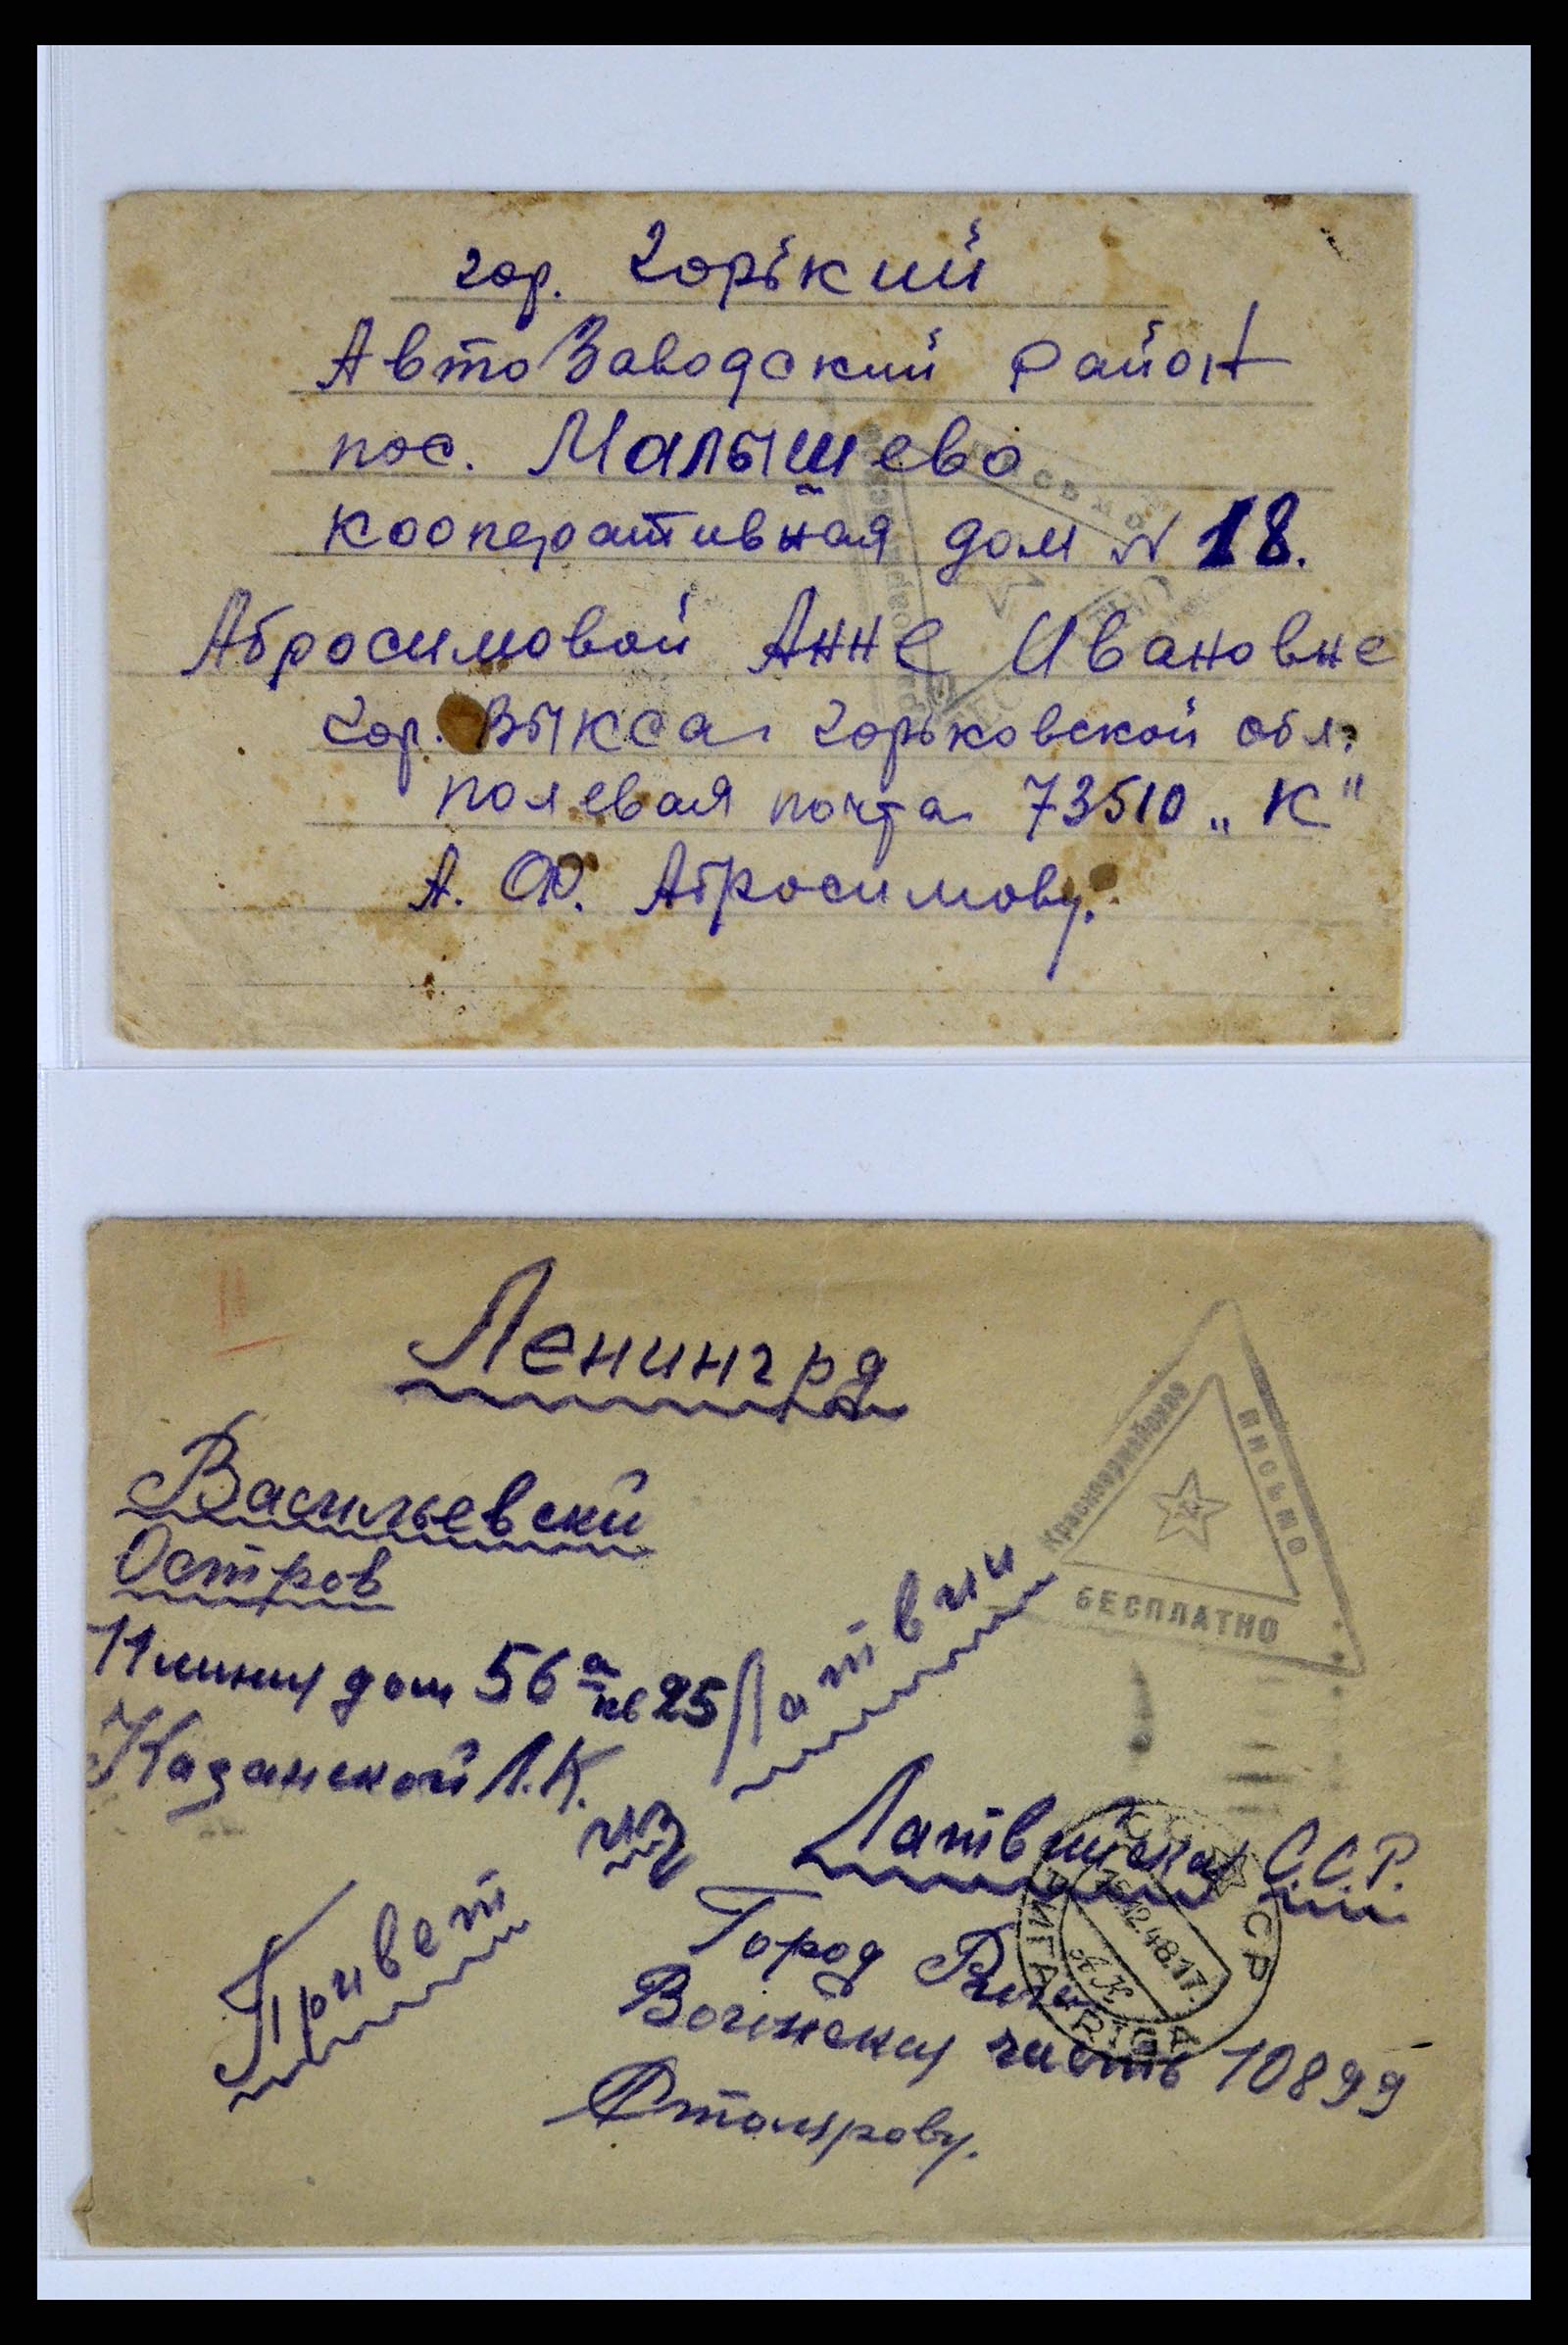 гор. Горький
АвтоЗаводский район
пос. Малышево
кооперативная дом N 18.
Абросимовой Анне Ивановне
гор. Выкса Горьковской обл.
полевая почта 73510 „К"
А. Ф. Абросимову.
Ленингрд
Красноармейское
письмо
БЕСПЛАТНО
Васильевский
Остров
11 линия дом 56а кв 25
Казанской Л.К.
Привет
из
Латвии
Латвийская С.С.Р.
Город Рига
Воинская часть 10899
Столярову.
РИГА RIGA
12 48.17